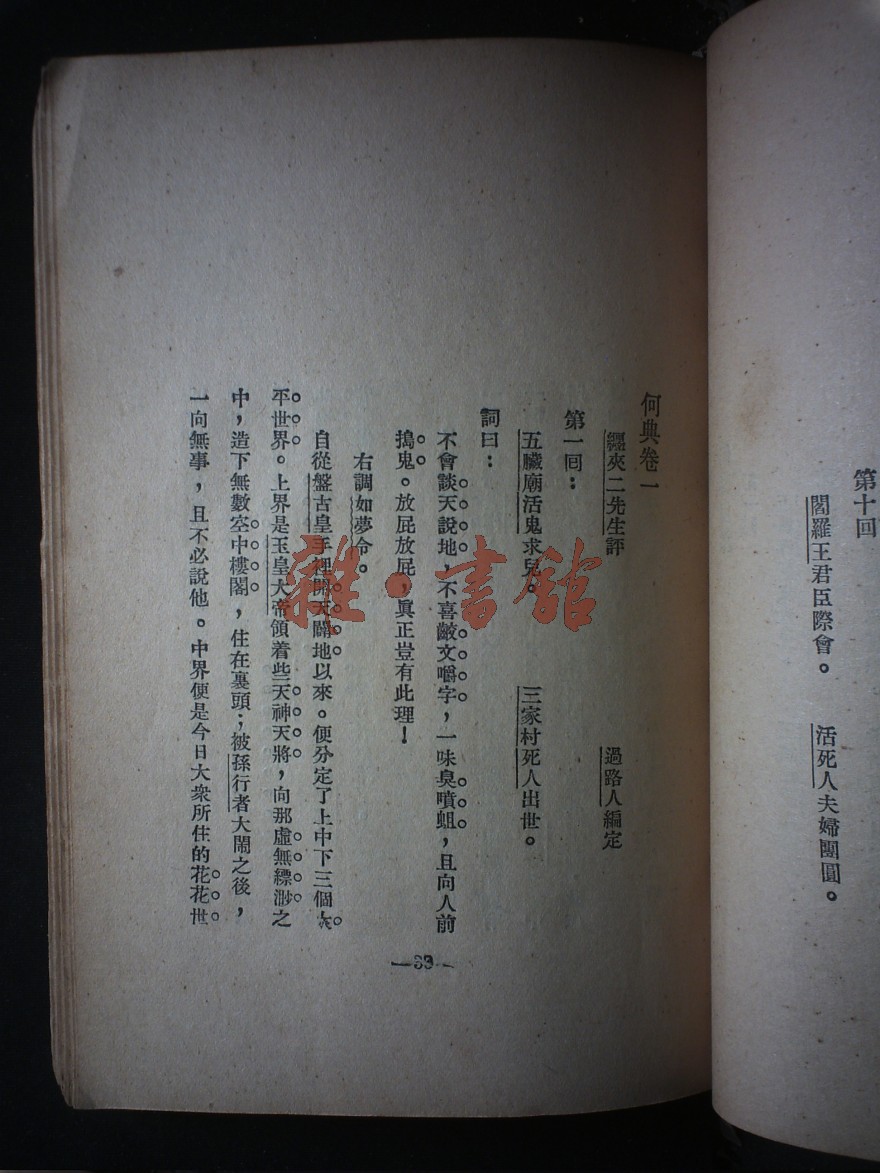 第十回
閻羅王君臣際會。　活死人夫婦團圓。
何典卷一
纏夾二先生評　過路人編定
第一回：
五臟廟活鬼求兒。　三家村死人出世。
詞曰：
不會談天說地，不喜齩文嚼字，一味臭噴蛆，且向人前
搗鬼。放屁放屁，眞正豈有此理！
右調如夢令。
自從盤古皇手裡開天闢地以來。便分定了上中下三個太
平世界。上界是玉皇大帝領着些天神天將，向那虛無縹渺之
中，造下無數空中樓閣，住在裏頭；被孫行者大鬧之後，
一向無事，且不必說他。中界便是今日大衆所住的花花世
—63—
雜·書館